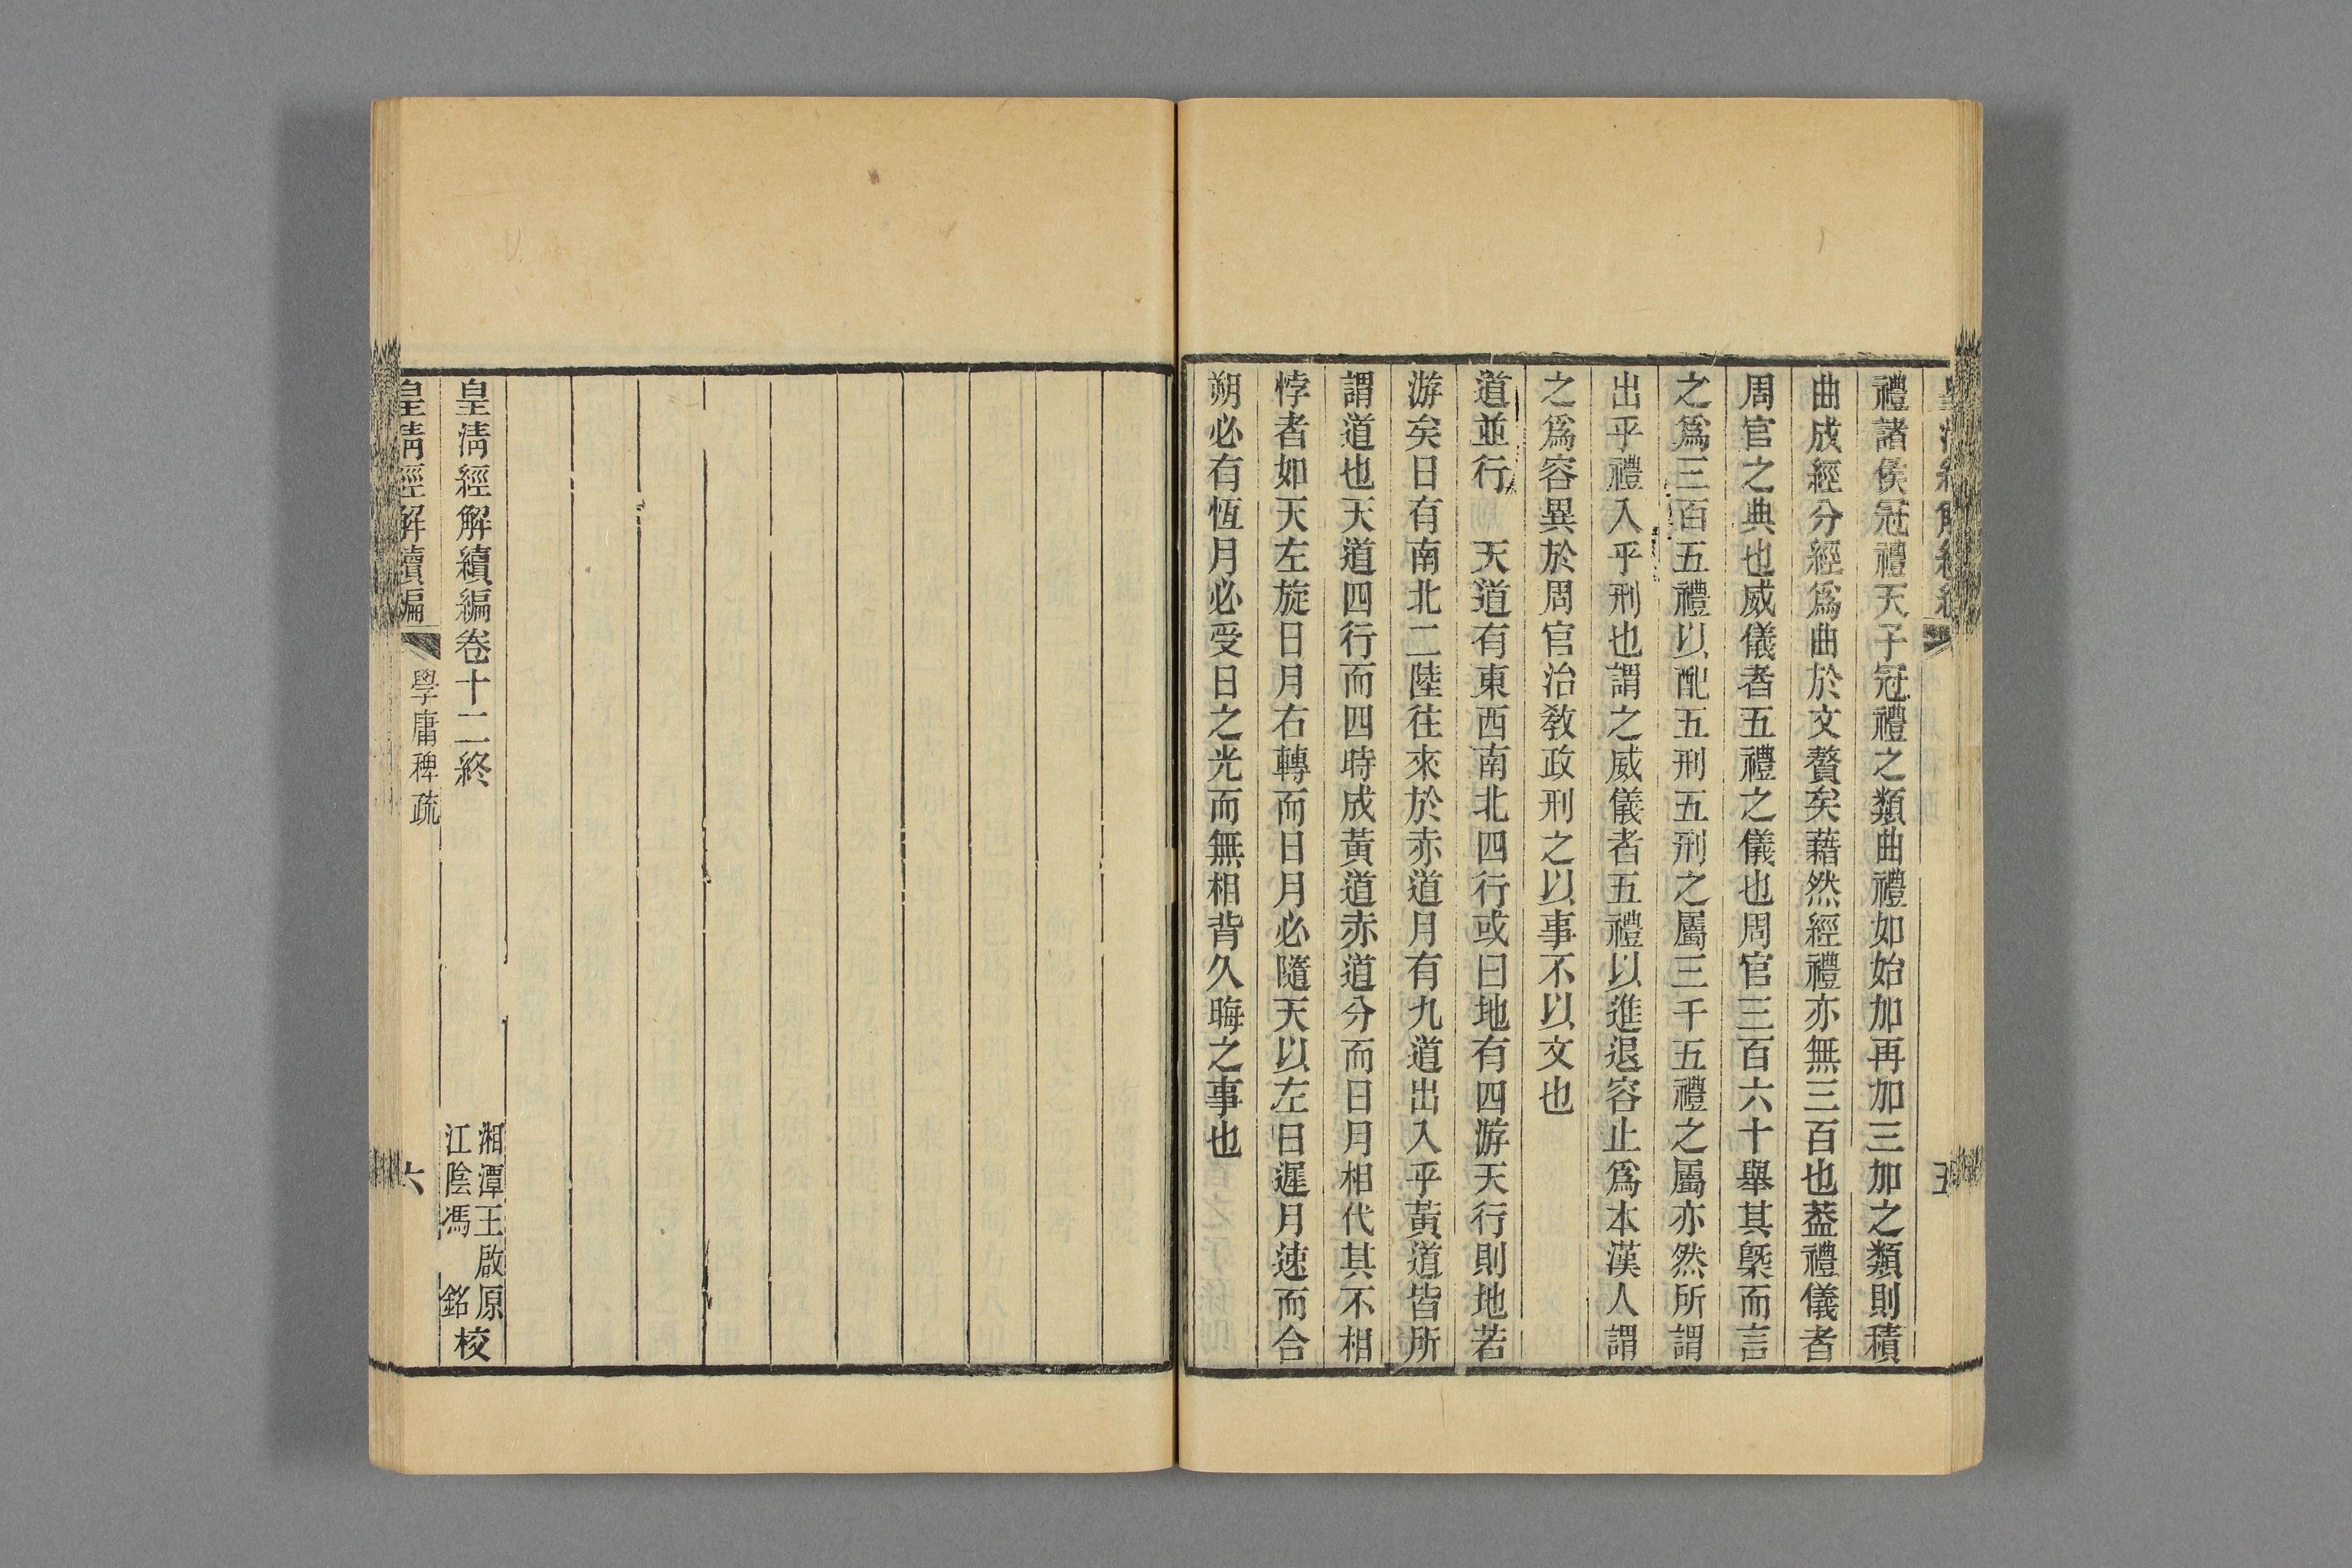 禮諸侯冠禮天子冠禮之類曲禮如始加再加三加之類則積
曲成經分經爲曲於文贅矣藉然經禮亦無三百也葢禮儀者
周官之典也威儀者五禮之儀也周官三百六十舉其槩而言
之爲三百五禮以配五刑五刑之屬三千五禮之屬亦然所謂
出乎禮入乎刑也謂之威儀者五禮以進退容止爲本漢人謂
之爲容異於周官治教政刑之以事不以文也
道並行　天道有東西南北四行或曰地有四游天行則地若
游矣日有南北二陸往來於赤道月有九道出入乎黃道皆所
謂道也天道四行而四時成黃道赤道分而日月相代其不相
悖者如天左旋日月右轉而日月必隨天以左日遲月速而合
朔必有恆月必受日之光而無相背久晦之事也
皇淸經解續編卷十二終
湘潭王啟原
江陰馮　銘
校
皇淸經解續編
學庸稗疏
六